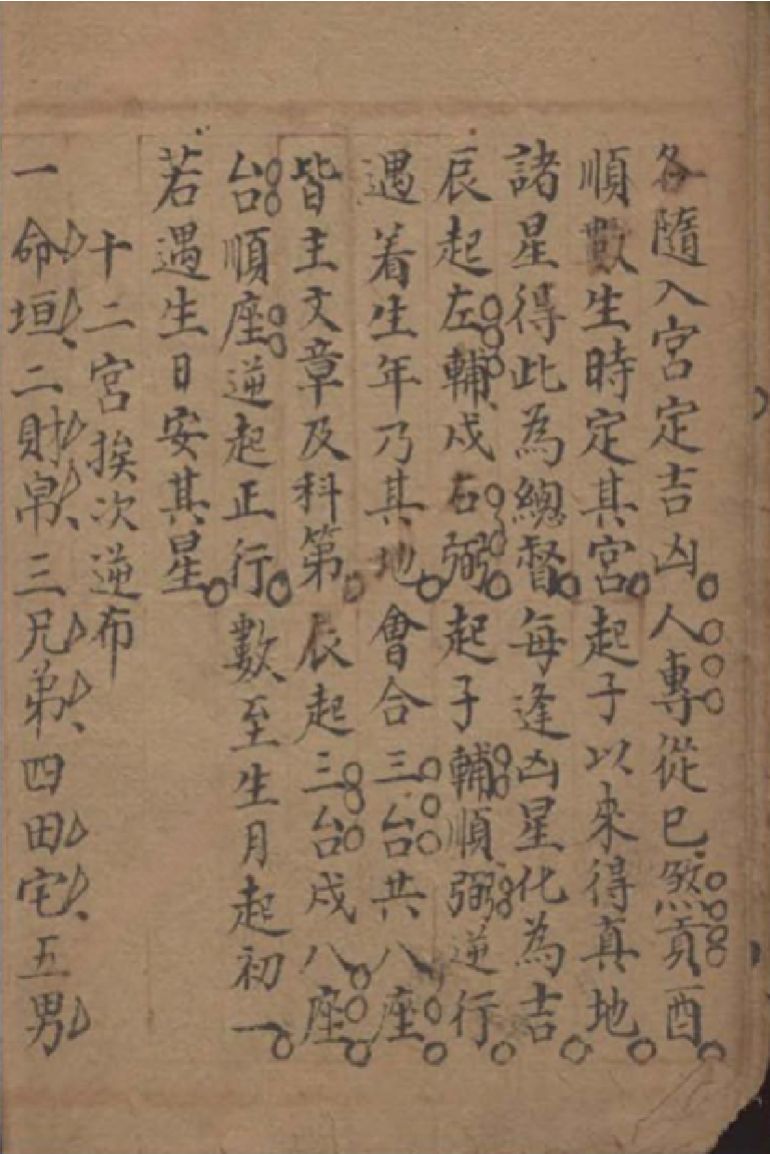 各隨入宮定吉凶人專從巳煞貢酉
順數生時定其宮起子以來得真地
諸星得此為總督每逢凶星化為吉
辰起左輔戌右弼起子輔順弼逆行
遇着生年乃其地會合三台共八座
皆主文章及科第辰起三台戌八座
台順座逆起正行數至生月起初一
若遇生日安其星
十二宮挨次逆布
一命垣二財帛三兄弟四田宅五男